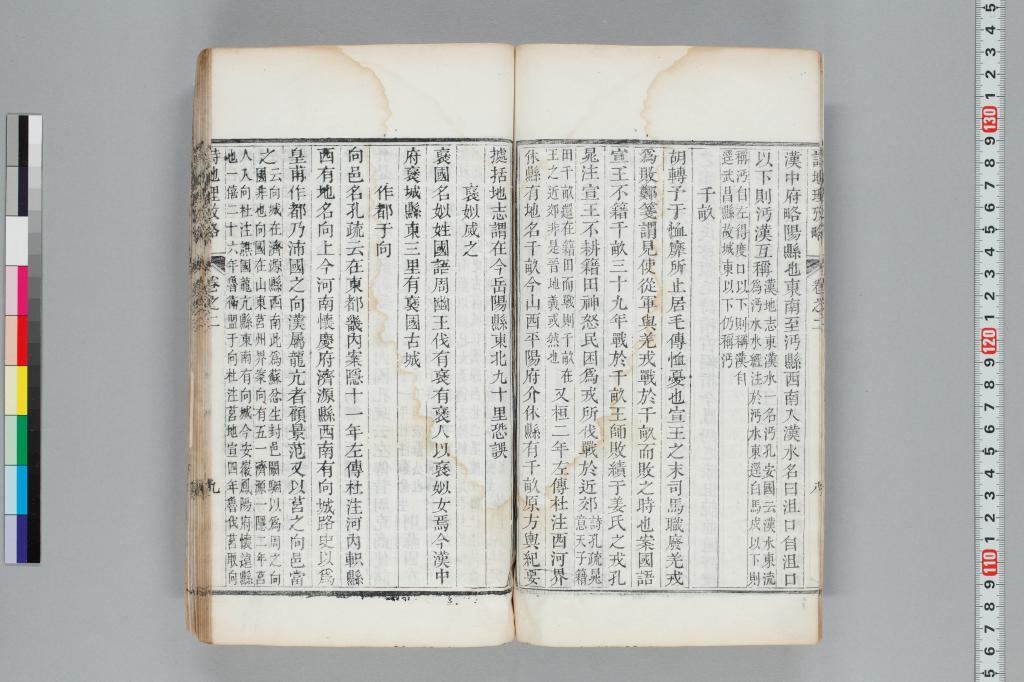 漢中府略陽縣也東南至沔縣西南入漢水名曰沮口自沮口
以下則沔漢互稱漢地志東漢水一名沔孔安國云漢水東流
爲沔水水經注於沔水東逕白馬戍以下則
稱沔自左得度口以下則稱漢自
逕武昌縣故城東以下仍稱沔
千畝
胡轉予于恤靡所止居毛傳恤憂也宣王之末司馬職廢羌戎
爲敗鄭箋謂見使從軍與羌戎戰於千畝而敗之時也案國語
宣王不籍千畝三十九年戰於千畝王師敗績于姜氏之戎孔
晁注宣王不耕籍田神怒民困爲戎所伐戰於近郊詩孔疏晁
意天子籍
田千畝還在籍田而戰則千畝在
王之近郊非是晉地義或然也又桓二年左傳杜注西河界
休縣有地名千畝今山西平陽府介休縣有千畝原方輿紀要
據括地志謂在今岳陽縣東北九十里恐誤
襃姒威之
襃國名姒姓國語周幽王伐有襃有襃人以襃姒女焉今漢中
府襃城縣東三里有襃國古城
作都于向
向邑名孔疏云在東都畿內案隱十一年左傳杜注河內軹縣
西有地名向上今河南懷慶府濟源縣西南有向城路史以爲
皇甫作都乃沛國之向漢屬龍亢者顧景范又以莒之向邑當
之云向城在濟源縣西南此爲蘇忿生封邑關駰以爲周之向
國非也向國在山東莒州界案向有五一濟源一隱二年莒
人入向杜注譙國龍亢縣東南有向城今安徽鳳陽府懷遠縣
也一僖二十六年魯衛盟于向杜注莒地宣四年魯伐莒取向
詩地理攷略
卷之二
九